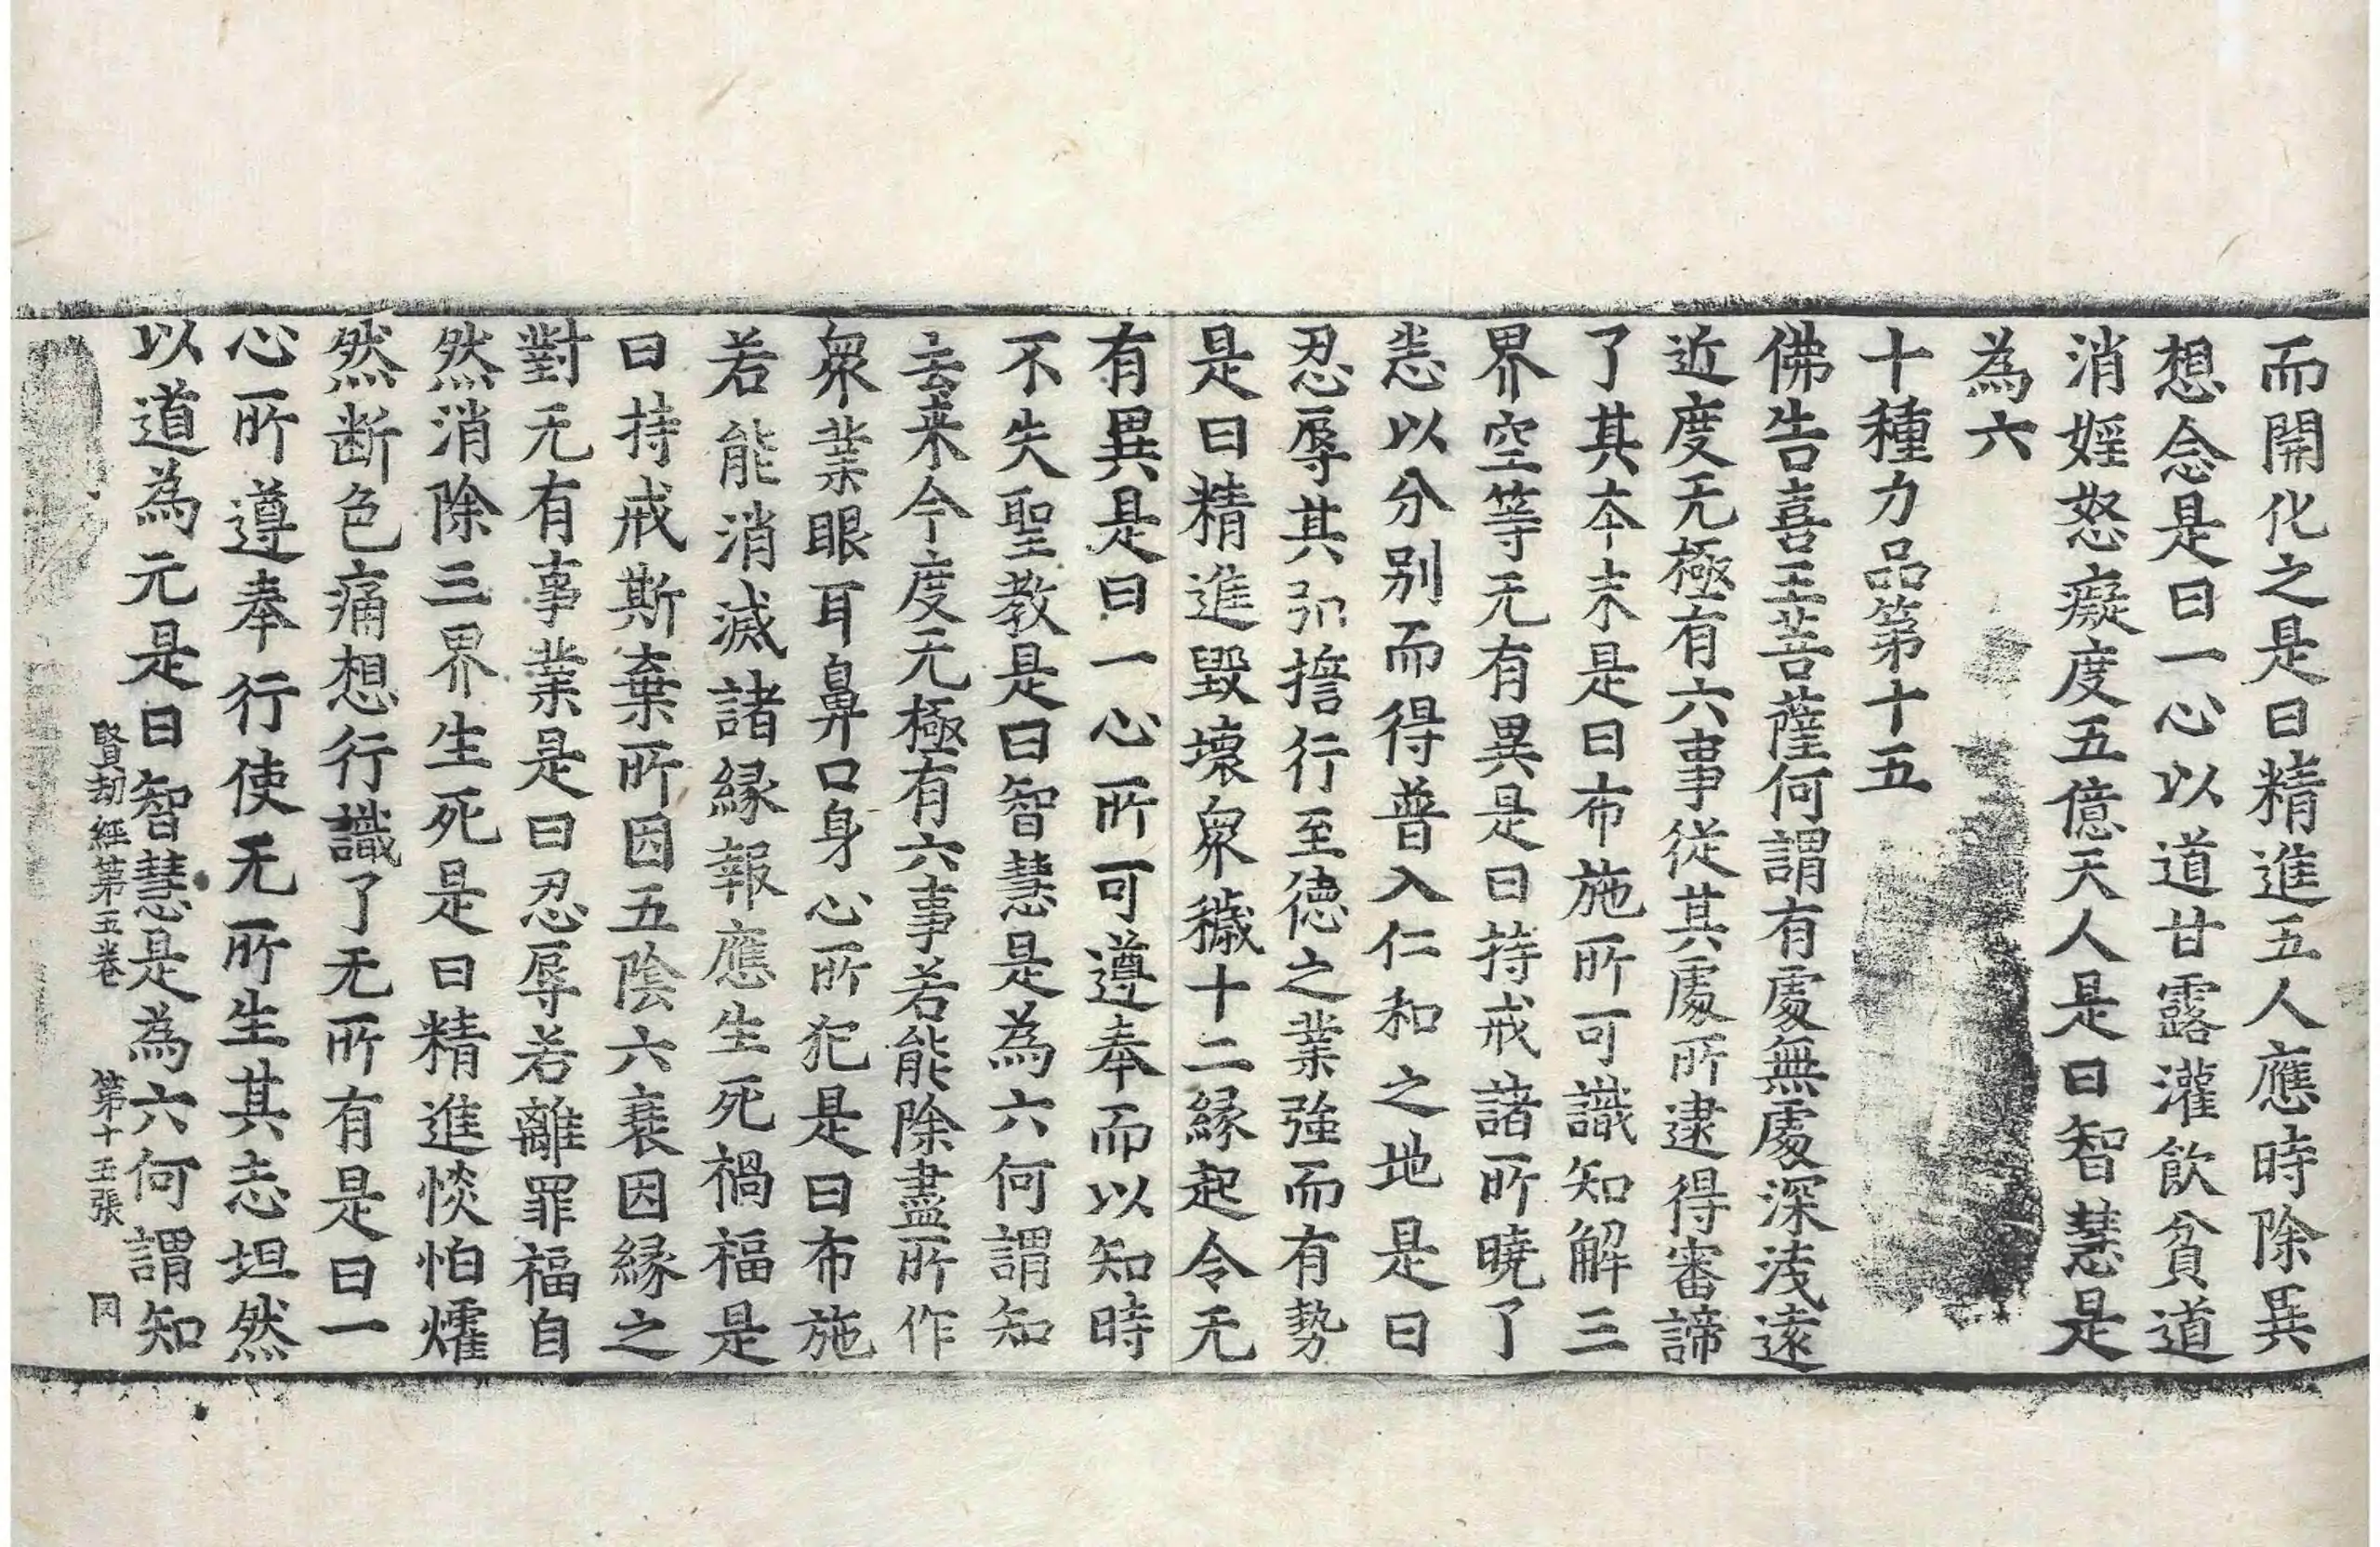 而開化之是曰精進五人應時除異
想念是曰一心以道甘露灌飲貧道
消婬怒癡度五億天人是曰智慧是
為六
十種力品第十五
佛告喜王菩薩何謂有處無處深淺遠
近度无極有六事從其處所逮得審諦
了其本末是曰布施所可識知解三
界空等无有異是曰持戒諸所曉了
恙以分別而得普入仁和之地是曰
忍辱其弘擔行至德之業強而有勢
是曰精進毀壞衆穢十二緣起令无
有異是曰一心所可遵奉而以知時
不失聖教是曰智慧是為六何謂知
去来今度无極有六事若能除盡所作
衆業眼耳鼻口身心所犯是曰布施
若能消滅諸緣報應生死禍福是
曰持戒斯棄所因五陰六衰因緣之
對无有事業是曰忍辱若離罪福自
然消除三界生死是曰精進惔怕燿
然断色痛想行識了无所有是曰一
心所遵奉行使无所生其志坦然
以道為元是曰智慧是為六何謂知
賢劫經第五卷 第十五張 同